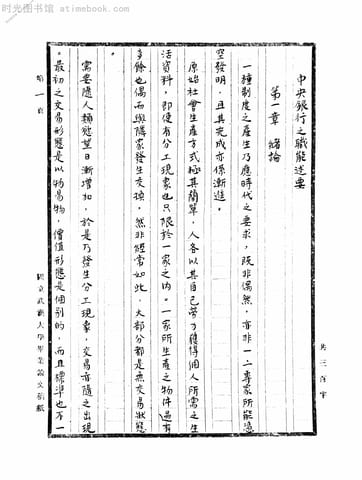 时光图书馆 - atimebook.com
中央銀行之職能述要
第一章 緒論
一種制度之產生乃應時代之要求，既非偶然，亦非一二專家所能憑
空發明，且其完成亦係漸進。
原始社會生產方式極其簡單，人各以其自己勞力獲得個人所需之生
活資料，即使有分工現象也只限於一家之內。一家所生產之物件過有
多餘也偶而與隣家發生交換。然非經常如此，大部分都是無交易狀態
需要隨人類慾望日漸增加，於是乃發生分工現象，交易亦隨之出現
。最初之交易形態是以物易物，價值形態是個別的，而且標準也不一
共三百字
第一頁
國立武漢大學畢業論文稿紙
时光图书馆 - atimebook.com